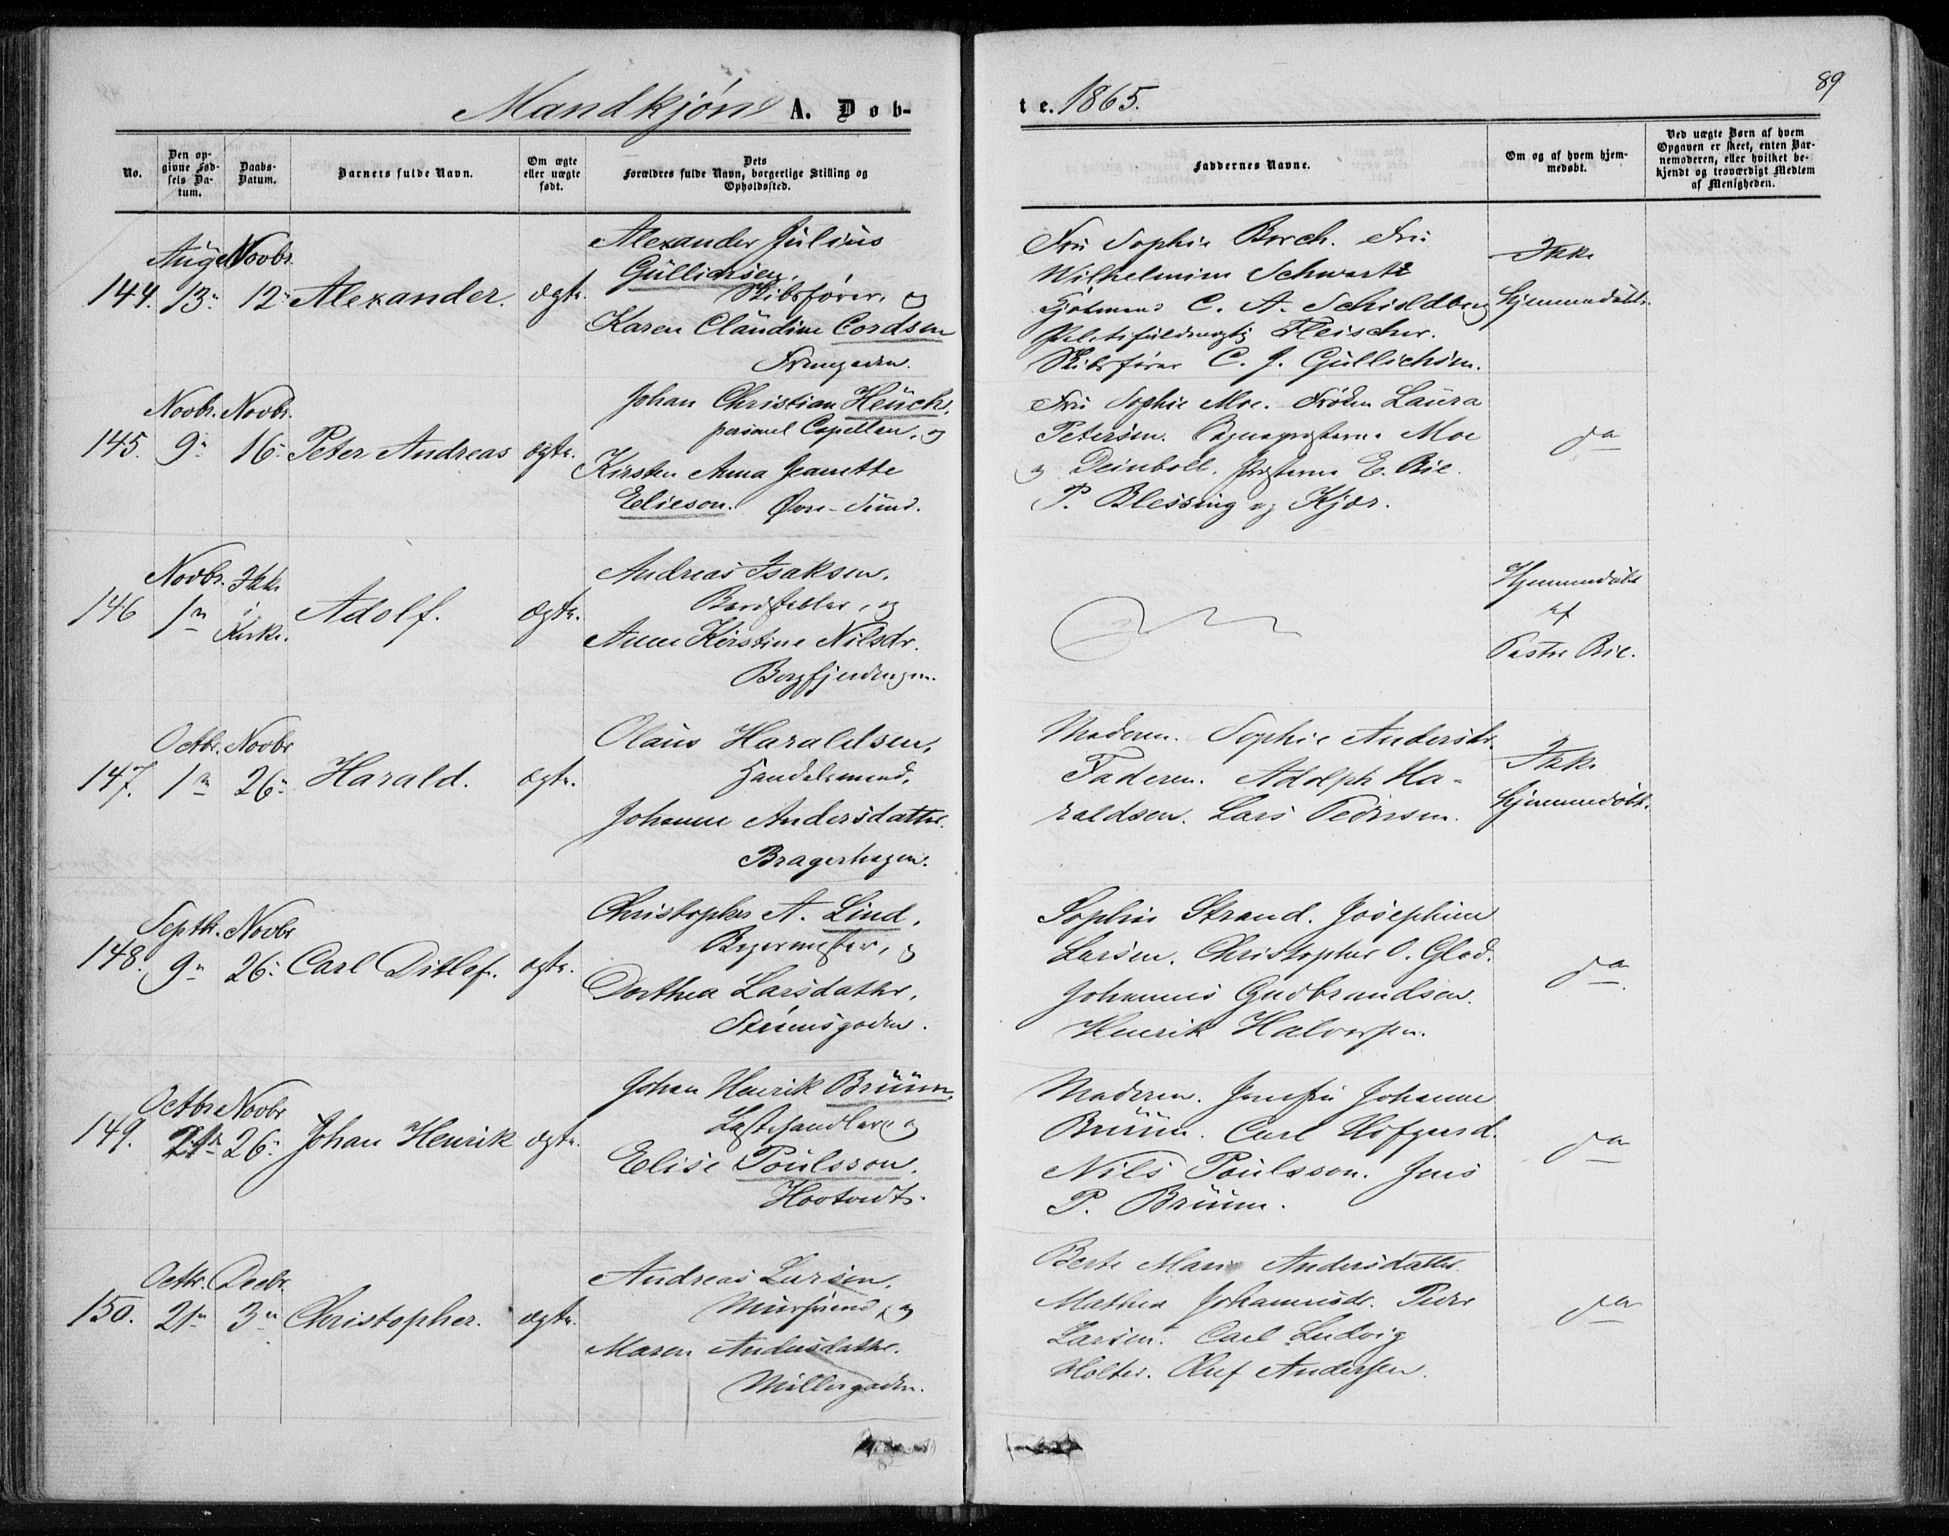 89
Mandkjøn A. Døbte. 1865.
No.
Den opgivne Fødsels Datum.
Daabs-Datum.
Barnets fulde Navn.
Om ægte eller uægte født.
Dets Forældres fulde Navn, borgerlige Stilling og Opholdssted.
Faddernes Navne.
Om og af hvem hjemmedøbt.
Ved uægte Børn af hvem Opgaven er skeet, enten Barnemoderen, eller hvilket bekjendt og troværdigt Medlem af Menigheden.
144.
Aug.
13
Novbr.
12
Alexander.
ægte.
Alexander Julius
Gullichsen,
Skibsfører, og
Karen Claudine Cordsen
Fru Sophie Borch. Fru
Wilhelmine Schwartz
C. A. Schioldborg
Fleischer.
Skibsfører C. J. Gullichsen.
Ikke
Hjemmedøbt.
145.
Novbr.
9
Novbr.
16
Peter Andreas
ægte.
Johan Christian Heuch,
personel Capellan, og
Kirsten Anna Jeanette
Elieson. Øvre-Sund.
Fru Sophie Moe. Frøken Laura
Petersen. Sognepræsterne Moe
og Deinboll. Præsterne E. Rie.
P. Blessing og Kjær.
do
146
Novbr.
1
Ikke
i
Kirke.
Adolf.
ægte.
Andreas Isaksen.
og
Anne Kirstine Nilsdr.
Borgfjerdingen.
Hjemmedøbt
af
Pastor Rie.
147.
Octbr.
1
Novbr
26
Harald.
ægte.
Olaus Haraldsen,
Handelsmand.
Johanne Andersdatter.
Bragerhagen.
Moderen. Sophie Andersdr.
Faderen. Adolph Ha-
raldsen. Lars Pedersen.
Ikke
Hjemmedøbt.
148.
Septbr.
9
Novbr
26
Carl Ditlef.
ægte.
Christopher A. Lind,
Bagermester, og
Dorthea Larsdatter,
Strømsgaden.
Sophie Strand. Josephine
Larsen. Christopher O. Glad.
Johannes Gudbrandsen.
Henrik Halvorsen.
do
149.
Octbr
21
Novbr
26
Johan Henrik
ægte.
Johan Henrik Bruun,
Lasthandler og
Elise Poulsson.
Moderen. Jomfru Johanne
Bruun. Carl Hofgaard.
Nils Poulsson. Jens
P. Bruun.
do
150.
Octbr.
21
Decbr.
3
Christopher.
ægte.
Andreas Larsen.
Muursvend, og
Maren Andersdatter.
Møllergaden.
Berte Marie Andersdatter.
Mathea Johannesdr. Peder
Larsen. Carl Ludvig
Holter. Oluf Andersen.
do